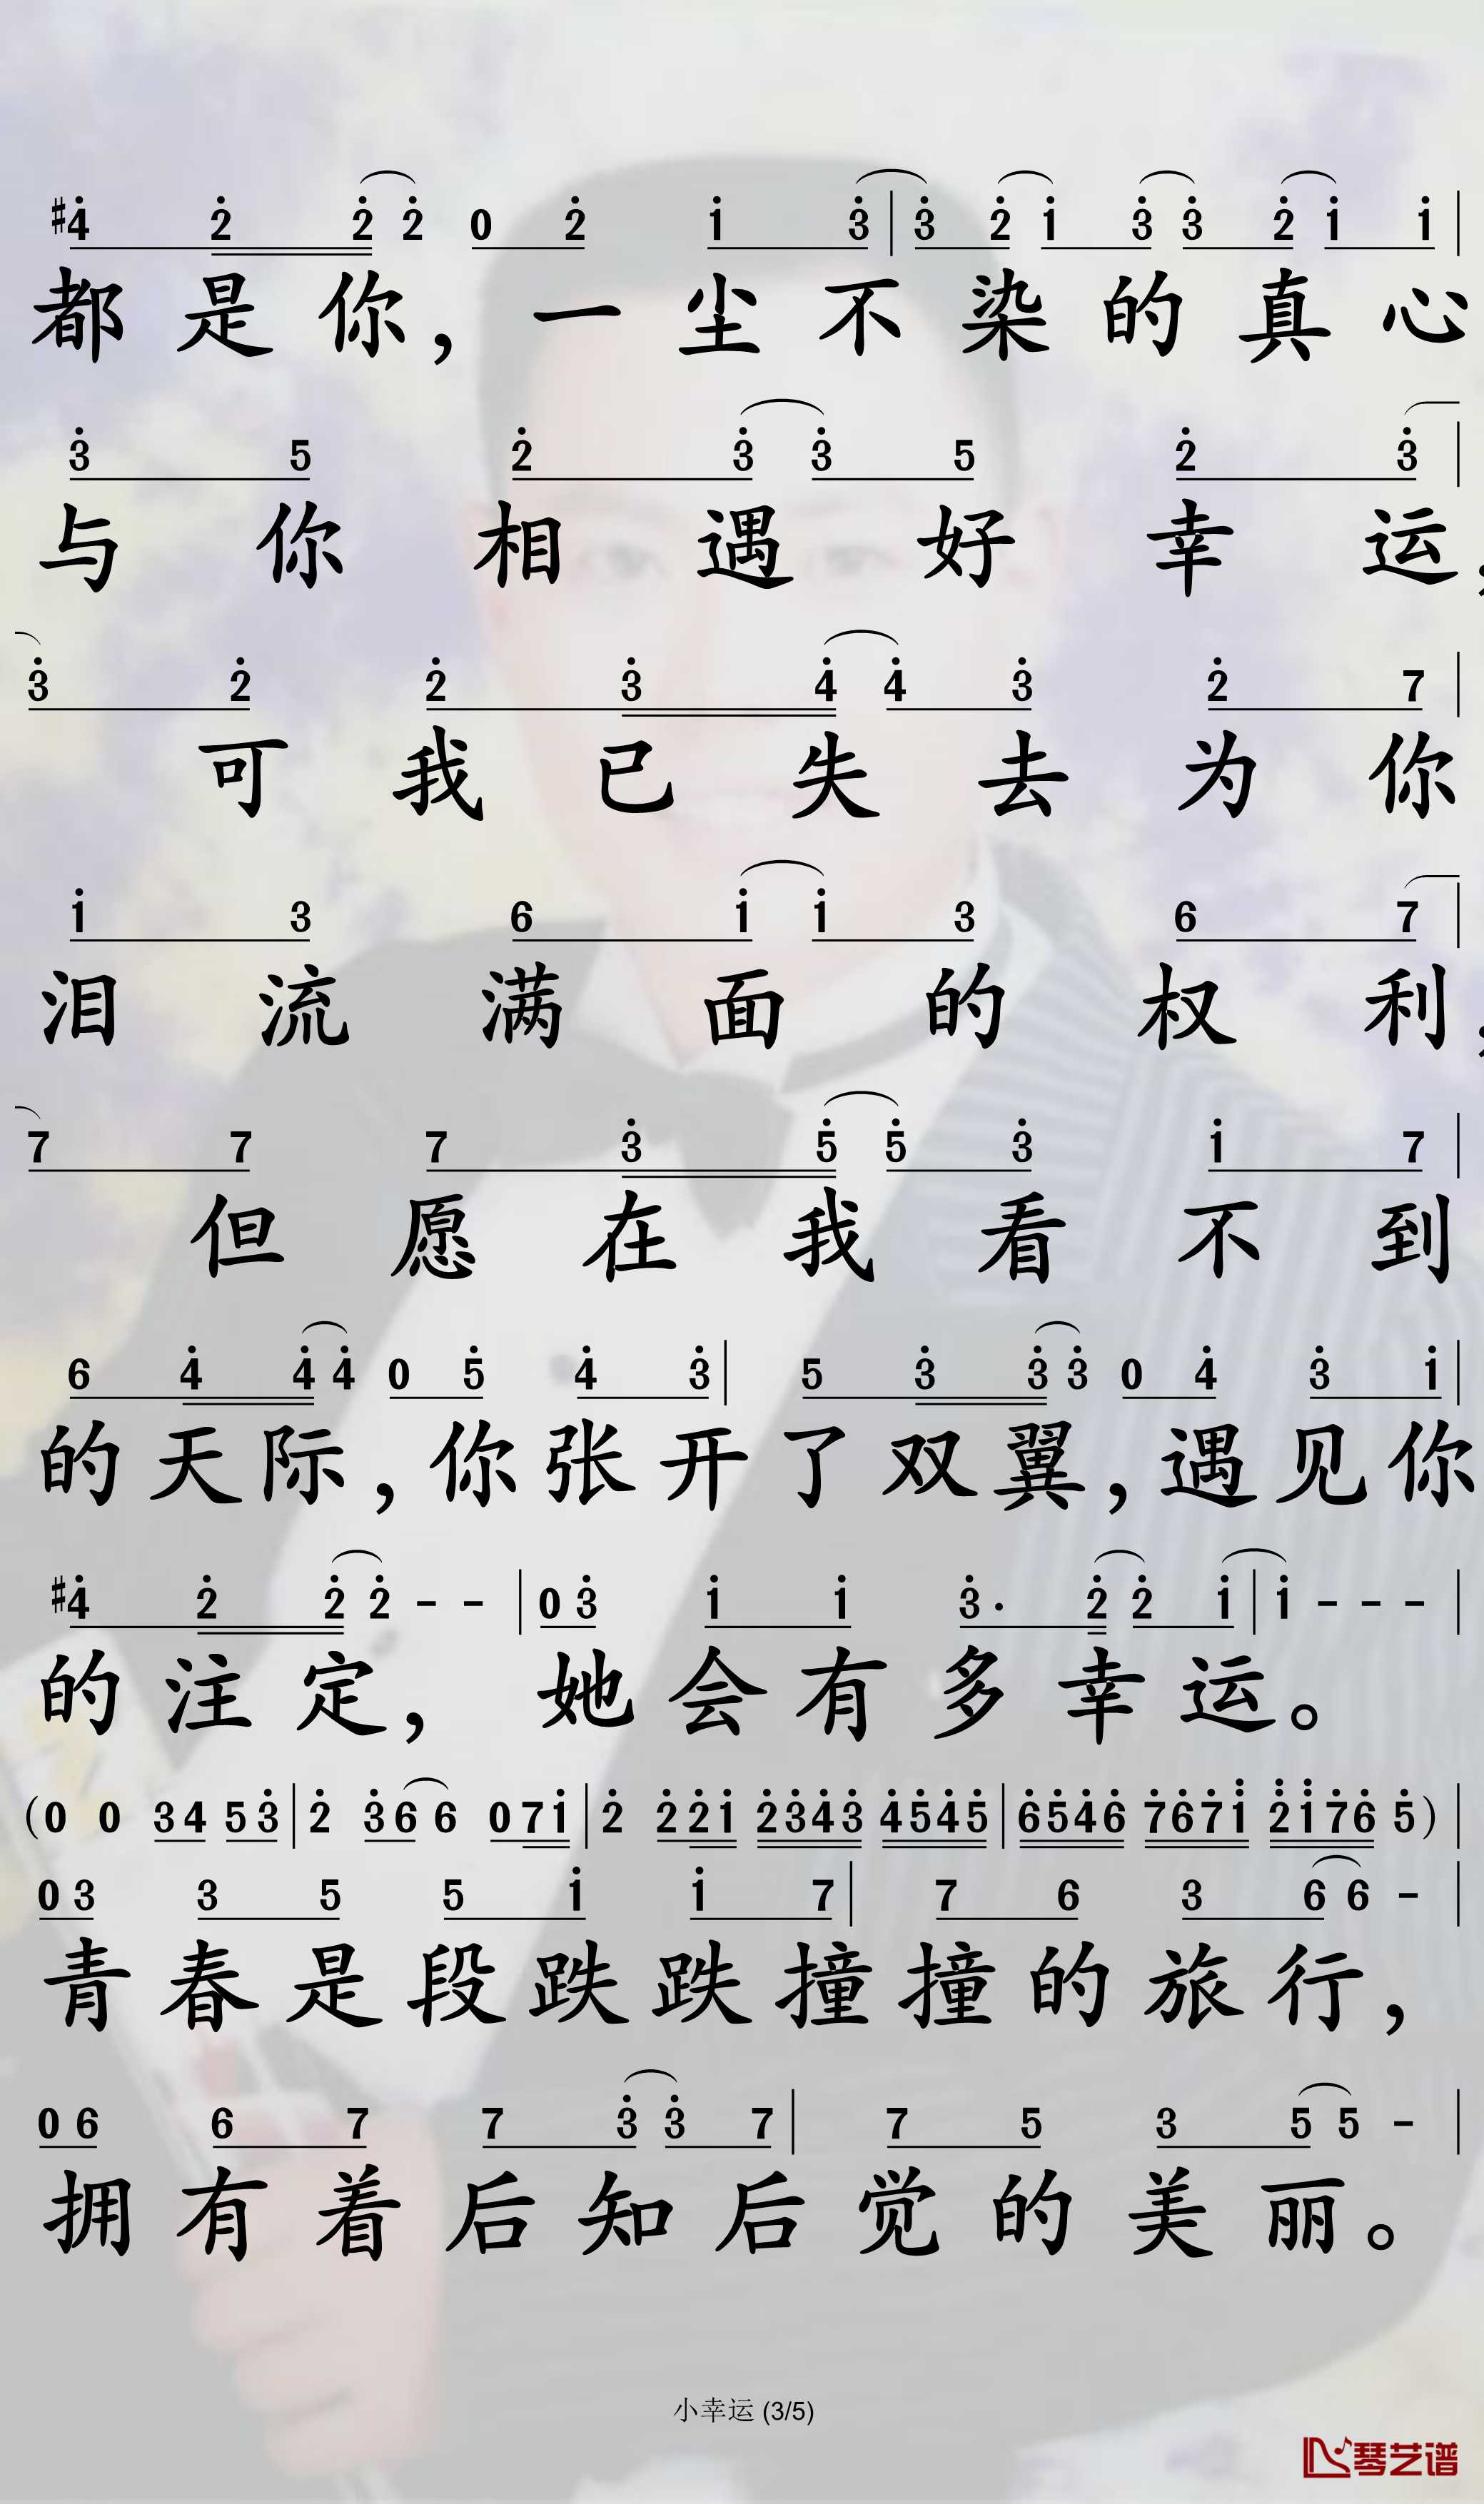 #4̇ 2̇ 2̇ 2̇ 0 2̇ 1̇ 3̇ | 3̇ 2̇ 1̇ 3̇ 3̇ 2̇ 1̇ 1̇ |
都是你，一尘不染的真心
3̇ 5 2̇ 3̇ 3̇ 5 2̇ 3̇ |
与你相遇好幸运，
3̇ 2̇ 2̇ 3̇ 4̇ 4̇ 3̇ 2̇ 7 |
可我已失去为你
1̇ 3 6 1̇ 1̇ 3 6 7 |
泪流满面的权利，
7 7 7 3̇ 5̇ 5̇ 3̇ 1̇ 7 |
但愿在我看不到
6 4̇ 4̇ 4̇ 0 5̇ 4̇ 3̇ | 5 3̇ 3̇ 3̇ 0 4̇ 3̇ 1̇ |
的天际，你张开了双翼，遇见你
#4̇ 2̇ 2̇ 2̇ - - | 0 3̇ 1̇ 1̇ 3̇ · 2̇ 2̇ 1̇ | 1̇ - - - |
的注定，她会有多幸运。
(0 0 3 4 5 3̇ | 2̇ 3̇ 6 6 0 7 1̇ | 2̇ 2̇ 2̇ 1̇ 2̇ 3̇ 4̇ 3̇ 4̇ 5̇ 4̇ 5̇ | 6̇ 5̇ 4̇ 6̇ 7̇ 6̇ 7̇ 1̈ 2̈ 1̈ 7̇ 6̇ 5̇) |
0 3 3 5 5 1̇ 1̇ 7 | 7 6 3 6 6 - |
青春是段跌跌撞撞的旅行，
0 6 6 7 7 3̇ 3̇ 7 | 7 5 3 5 5 - |
拥有着后知后觉的美丽。
小幸运 (3/5)
琴艺谱